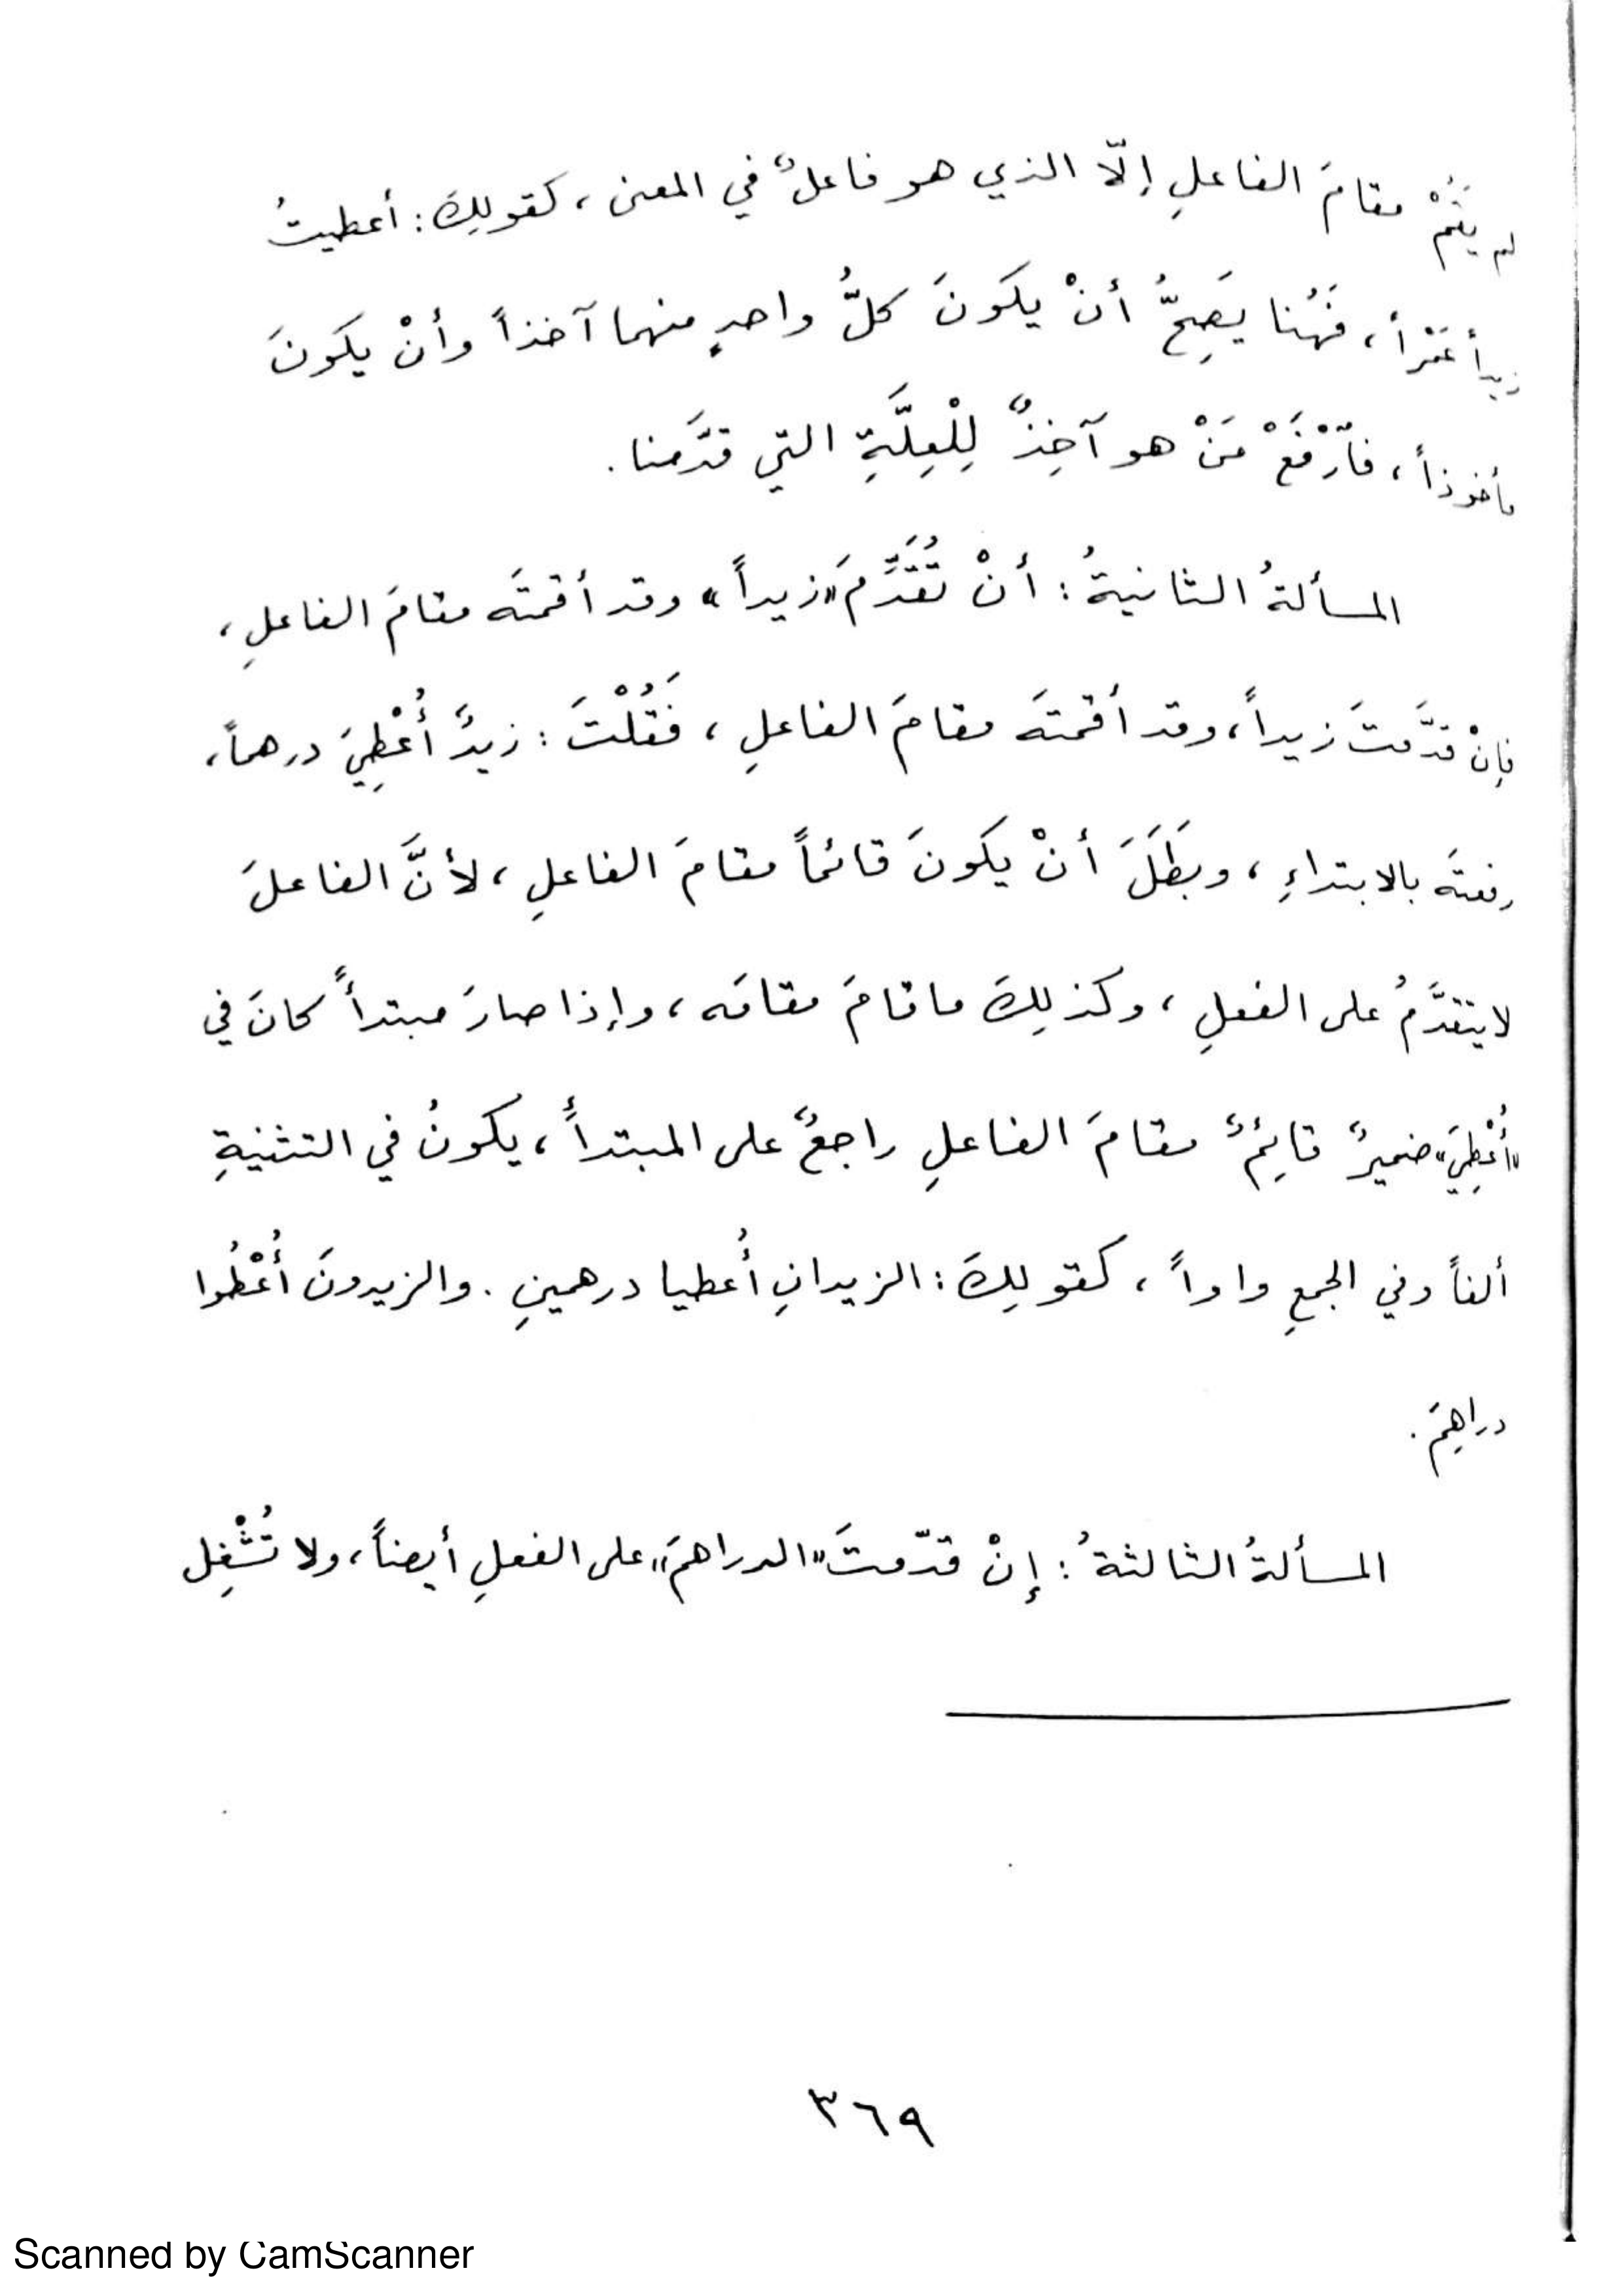 لم يَقُمْ مقامَ الفاعلِ إلّا الذي هو فاعلٌ في المعنى ، كقولِكَ : أعطيتُ
زيداً عَمْراً ، فَهُنا يَصِحُّ أنْ يكونَ كلُّ واحدٍ منهما آخذاً وأنْ يكونَ
مأخوذاً ، فٱرْفَعْ مَنْ هو آخِذٌ لِلْعِلَّةِ التي قدَّمنا .
المسألةُ الثانيةُ : أنْ تُقَدِّمَ «زيداً» وقد أقمتَه مقامَ الفاعلِ ،
فإنْ قدَّمتَ زيداً ، وقد أقمتَه مقامَ الفاعلِ ، فَقُلْتَ : زيدٌ أُعْطِيَ درهماً ،
رفعتَه بالابتداءِ ، وبَطَلَ أنْ يكونَ قائماً مقامَ الفاعلِ ، لأنَّ الفاعلَ
لا يتقدَّمُ على الفعلِ ، وكذلِكَ ما قامَ مقامَه ، وإذا صارَ مبتدأً كانَ في
«أُعْطِيَ» ضميرٌ قائِمٌ مقامَ الفاعلِ راجعٌ على المبتدأِ ، يكونُ في التثنيةِ
ألفاً وفي الجمعِ واواً ، كقولِكَ : الزيدانِ أُعطيا درهمينِ . والزيدونَ أُعْطُوا
دراهِمَ .
المسألةُ الثالثةُ : إنْ قدّمتَ «الدراهمَ» على الفعلِ أيضاً ، ولا تُشْغِل
٣٦٩
Scanned by CamScanner